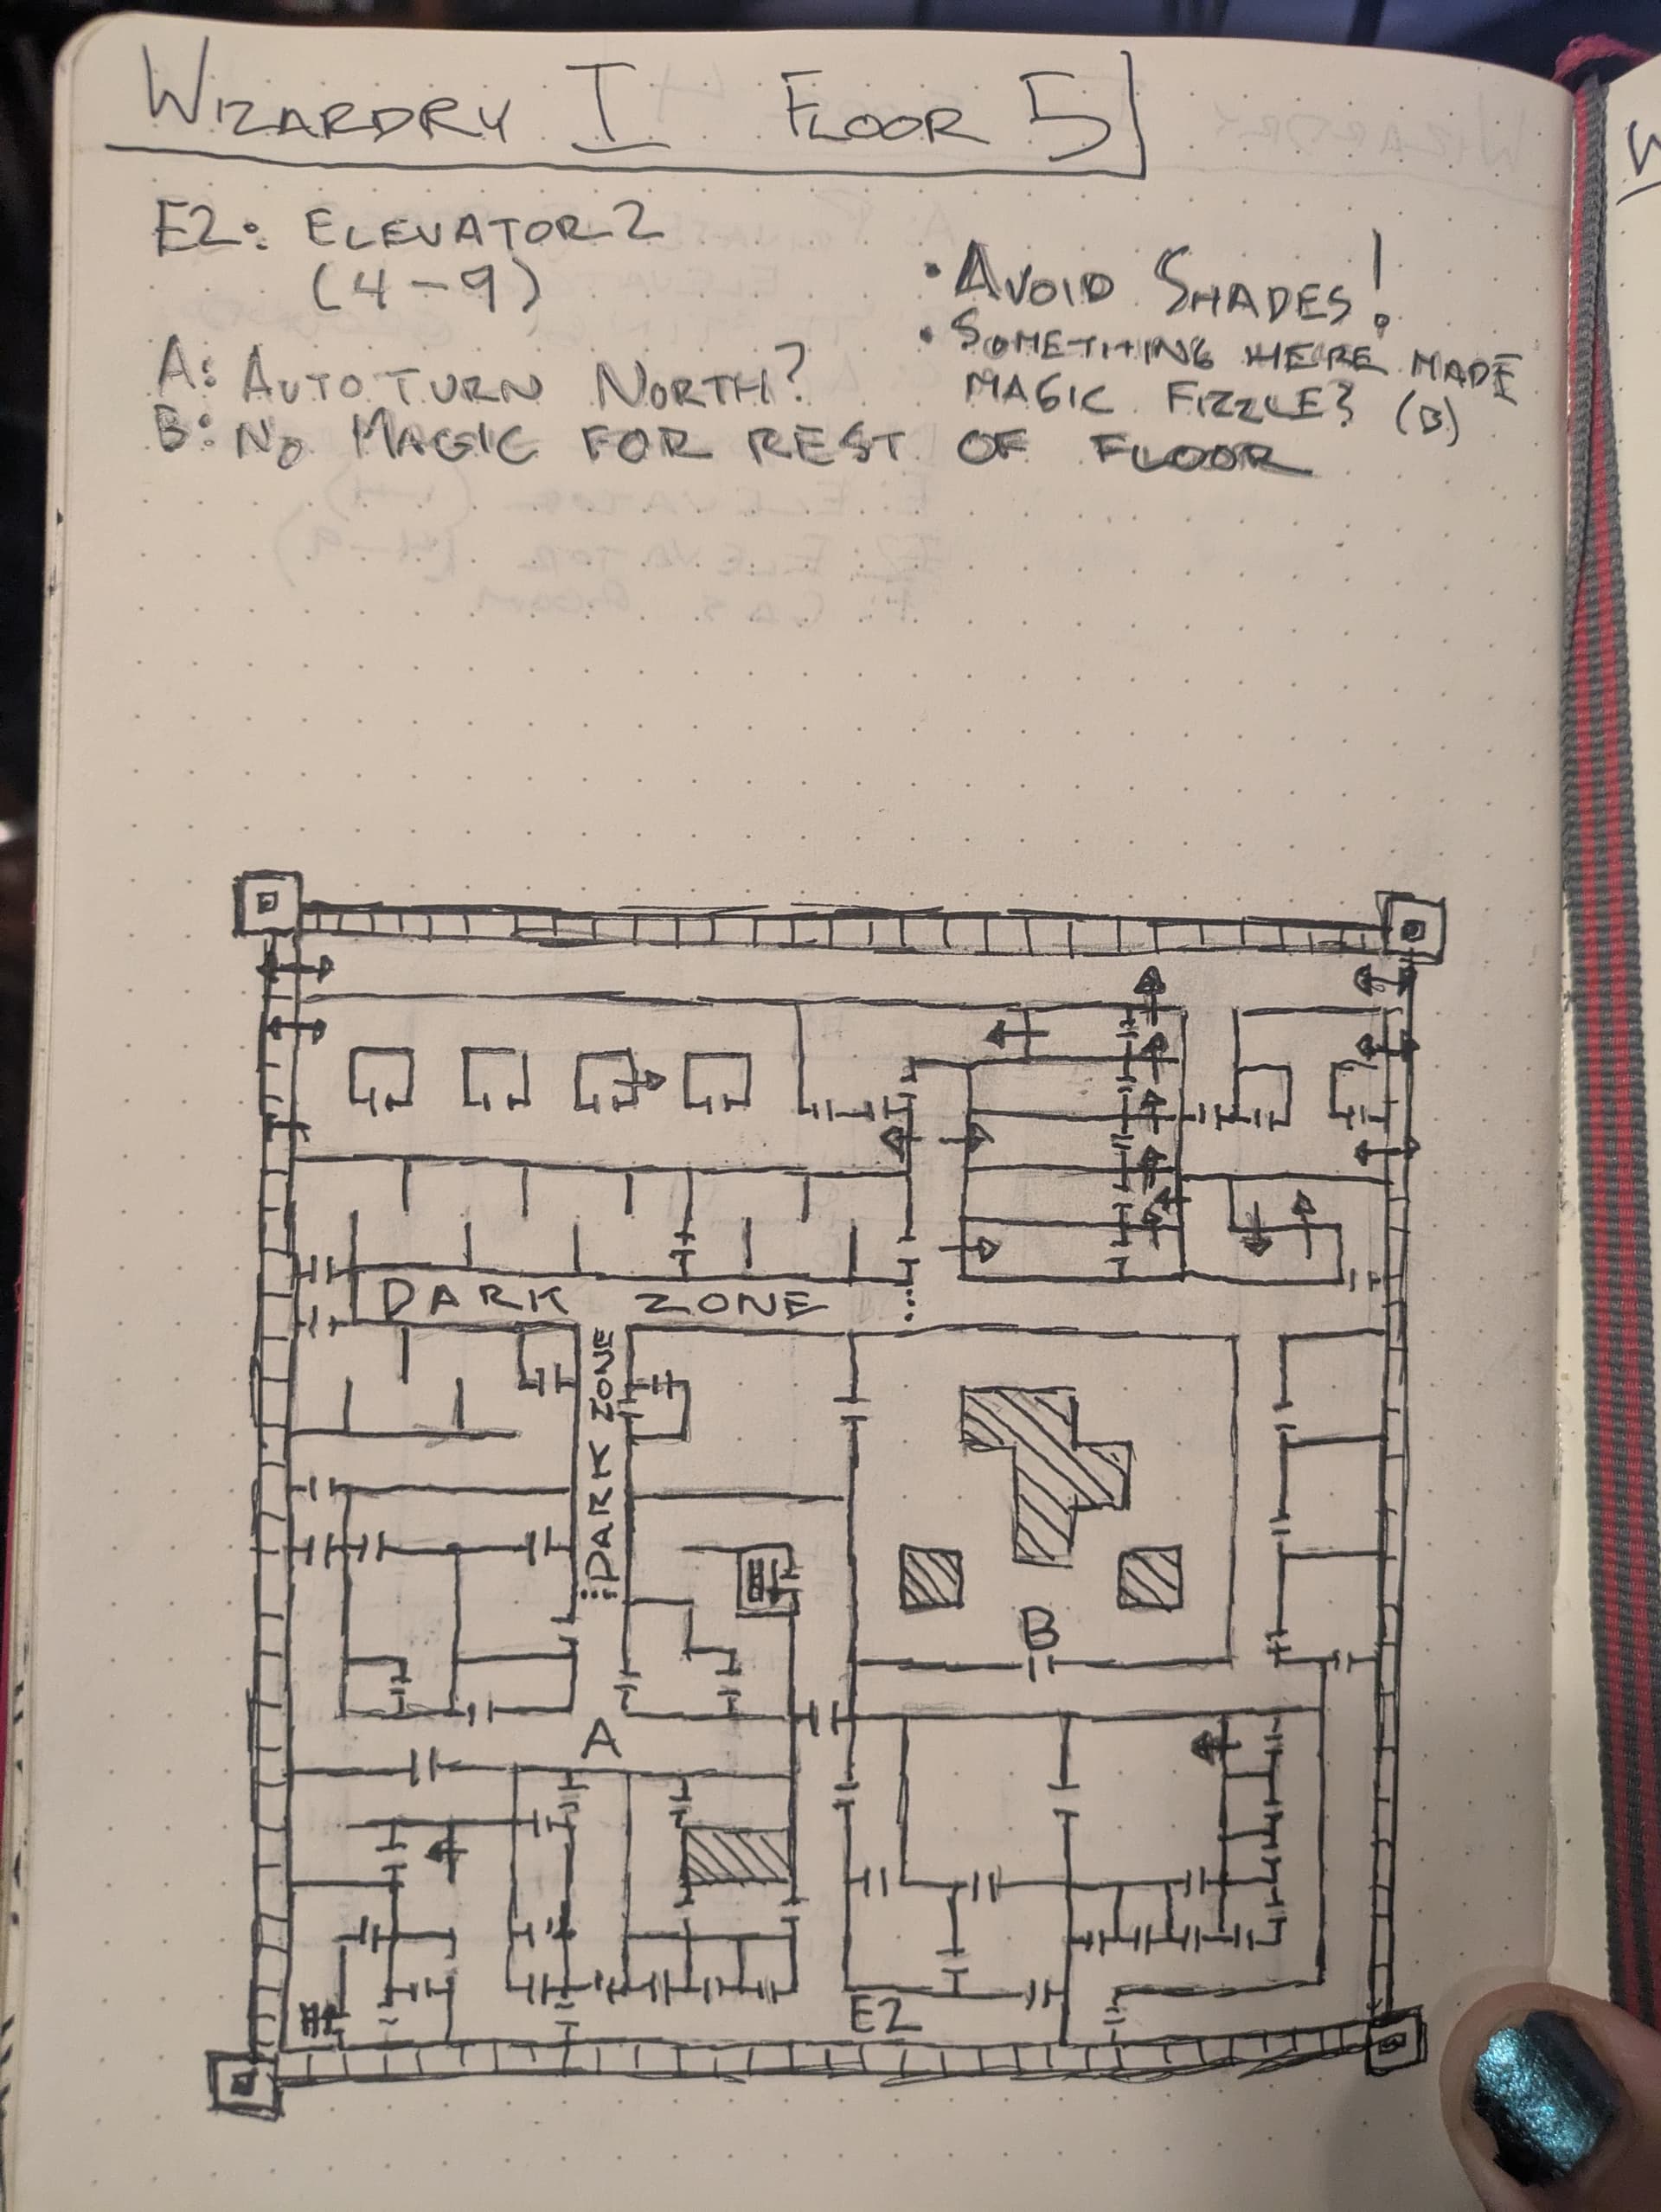 WIZARDRY I FLOOR 5
E2: ELEVATOR 2
(4-9)
A: AUTO TURN NORTH?
B: NO MAGIC FOR REST OF FLOOR
• AVOID SHADES!
• SOMETHING HERE MADE
MAGIC FIZZLE? (B)
DARK ZONE
DARK ZONE
B
A
E2